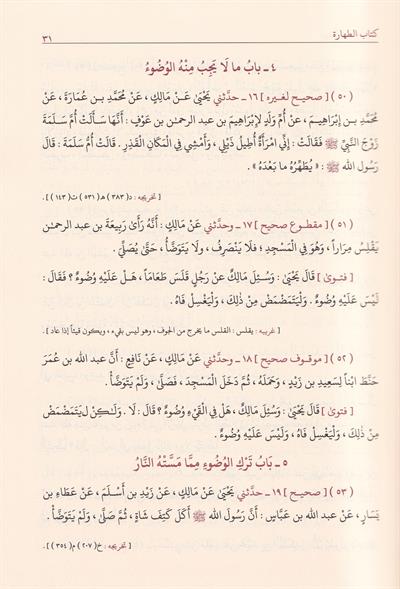 كتاب الطهارة ٣١
٤ ـ بابُ ما لَا يَجِبُ مِنْهُ الوُضُوءُ
(٥٠) [ صحيح لغيره ] ١٦ ـ حدّثني يَحْيَىٰ عَنْ مَالِكٍ، عَنْ مُحَمَّدِ بنِ عُمَارَةَ، عَنْ
مُحَمَّدِ بنِ إِبْرَاهِيمَ، عَنْ أُمِّ وَلَدٍ لإِبْرَاهِيمَ بنِ عبدِ الرحمٰنِ بنِ عَوْفٍ: أَنَّهَا سَأَلَتْ أُمَّ سَلَمَةَ
زَوْجَ النَّبِيِّ ﷺ فَقَالَتْ: إِنِّي امْرَأَةٌ أُطِيلُ ذَيْلِي، وَأَمْشِي فِي الْمَكَانِ القَذِرِ. قَالَتْ أُمُّ سَلَمَةَ: قَالَ
رَسولُ الله ﷺ : « يُطَهِّرُهُ مَا بَعْدَهُ » .
[ تخريجه : د( ٣٨٣ ) هـ( ٥٣١ ) ت( ١٤٣ ) ] .
(٥١) [ مقطوع صحيح ] ١٧ ـ وحدّثني عَنْ مَالِكٍ: أَنَّهُ رَأَىٰ رَبِيعَةَ بنَ عبدِ الرحمٰنِ
يَقْلِسُ مِرَاراً، وَهُوَ فِي الْمَسْجِدِ؛ فلَا يَنْصَرِفُ، ولَا يَتَوَضَّأُ، حَتَّىٰ يُصَلِّيَ.
[ فتوىٰ ] قَالَ يَحْيَىٰ: وَسُئِلَ مَالِكٌ عنْ رَجُلٍ قَلَسَ طَعَاماً، هَلْ عَلَيْهِ وُضُوءٌ؟ فَقَالَ:
لَيْسَ عَلَيْهِ وُضُوءٌ. وَلْيَتَمَضْمَضْ مِنْ ذٰلِكَ، وَلْيَغْسِلْ فَاهُ.
[ غريبه : يقلس: القلس ما يخرج من الجوف، وهو ليس بقيء، ويكون قيئاً إذا عاد ] .
(٥٢) [ موقوف صحيح ] ١٨ ـ وحدّثني عَنْ مَالِكٍ، عَنْ نَافِعٍ: أَنَّ عبدَ الله بنَ عُمَرَ
حَنَّطَ ابْناً لِسَعِيدِ بنِ زَيْدٍ، وَحَمَلَهُ، ثُمَّ دَخَلَ الْمَسْجِدَ، فَصَلَّىٰ، وَلَمْ يَتَوَضَّأْ.
[ فتوىٰ ] قَالَ يَحْيَىٰ: وَسُئِلَ مَالِكٌ، هَلْ فِي القَيْءِ وُضُوءٌ؟ قَالَ: لَا. وَلٰكِنْ لِيَتَمَضْمَضْ
مِنْ ذٰلِكَ، وَلْيَغْسِلْ فَاهُ، وَلَيْسَ عَلَيْهِ وُضُوءٌ.
٥ ـ بَابُ تَرْكِ الوُضُوءِ مِمَّا مَسَّتْهُ النَّارُ
(٥٣) [ صحيح ] ١٩ ـ حدّثني يَحْيَىٰ عَنْ مَالِكٍ، عَنْ زَيْدِ بنِ أَسْلَمَ، عَنْ عَطَاءِ بنِ
يَسَارٍ، عَنْ عبدِ الله بنِ عَبَّاسٍ: أَنَّ رَسُولَ الله ﷺ أَكَلَ كَتِفَ شَاةٍ، ثُمَّ صَلَّىٰ، وَلَمْ يَتَوَضَّأْ.
[ تخريجه : خ( ٢٠٧ ) م( ٣٥٤ ) ] .